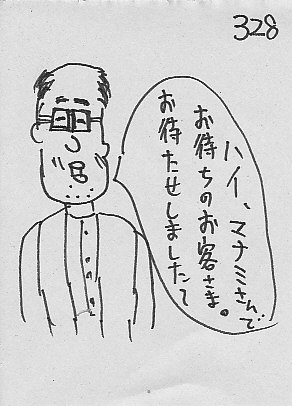 328
ハイ、マナミさんで
お待ちのお客さま。
お待たせしましたて